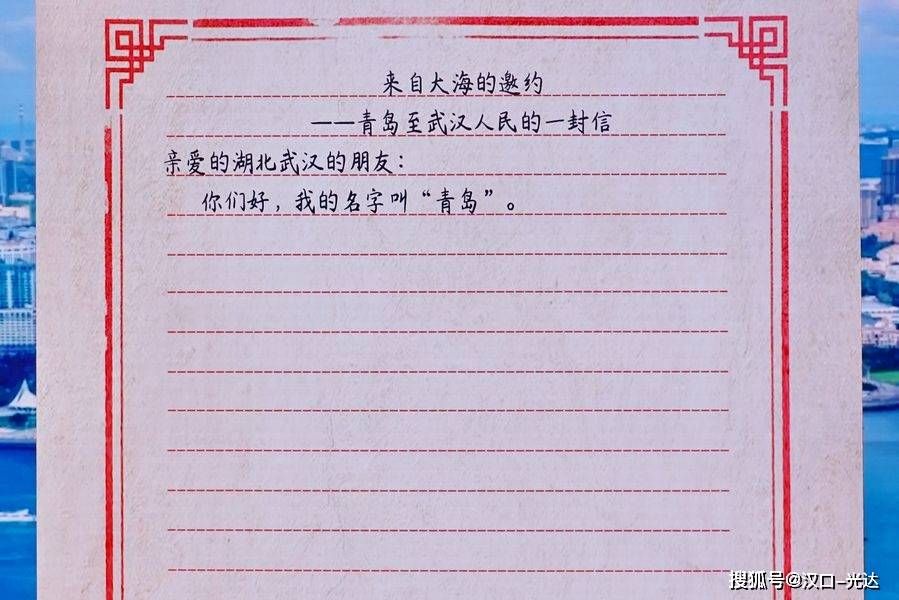 来自大海的邀约
——青岛至武汉人民的一封信
亲爱的湖北武汉的朋友：
你们好，我的名字叫“青岛”。
搜狐号@汉口-光达